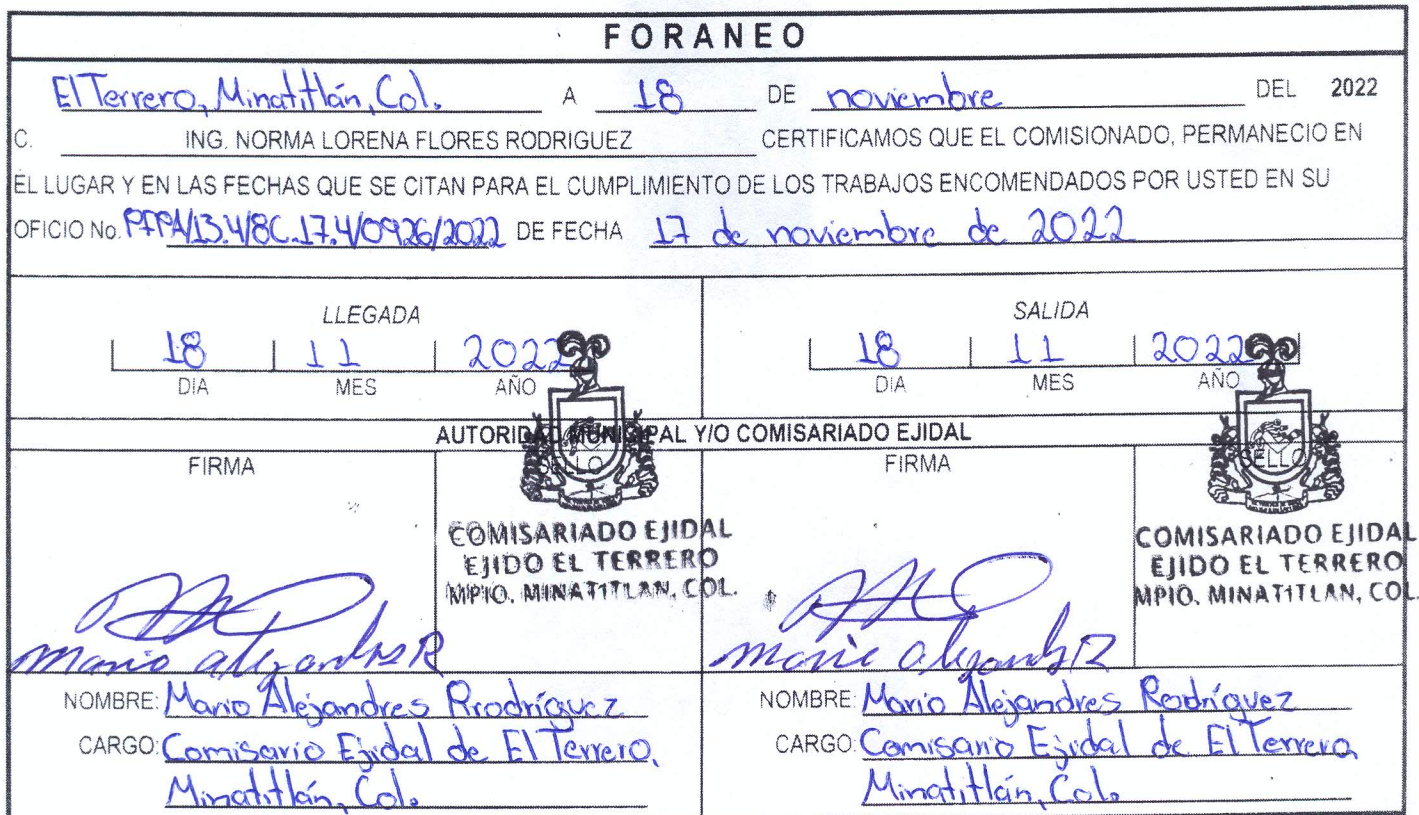 FORANEO
El Terrero, Minatitlán, Col. A 18 DE noviembre DEL 2022
C. ING. NORMA LORENA FLORES RODRIGUEZ CERTIFICAMOS QUE EL COMISIONADO, PERMANECIO EN
EL LUGAR Y EN LAS FECHAS QUE SE CITAN PARA EL CUMPLIMIENTO DE LOS TRABAJOS ENCOMENDADOS POR USTED EN SU
OFICIO No. PFPA/13.4/8C.17.4/0926/2022 DE FECHA 17 de noviembre de 2022
LLEGADA
18 11 2022
DIA MES AÑO
SALIDA
18 11 2022
DIA MES AÑO
AUTORIDAD MUNICIPAL Y/O COMISARIADO EJIDAL
FIRMA
SELLO
COMISARIADO EJIDAL
EJIDO EL TERRERO
MPIO. MINATITLAN, COL.
Mario Alejandres R
FIRMA
SELLO
COMISARIADO EJIDAL
EJIDO EL TERRERO
MPIO. MINATITLAN, COL.
Mario Alejandres R
NOMBRE: Mario Alejandres Rrodríguez
CARGO: Comisario Ejidal de El Terrero,
Minatitlán, Col.
NOMBRE: Mario Alejandres Rodríguez
CARGO: Comisario Ejidal de El Terrero,
Minatitlán, Col.